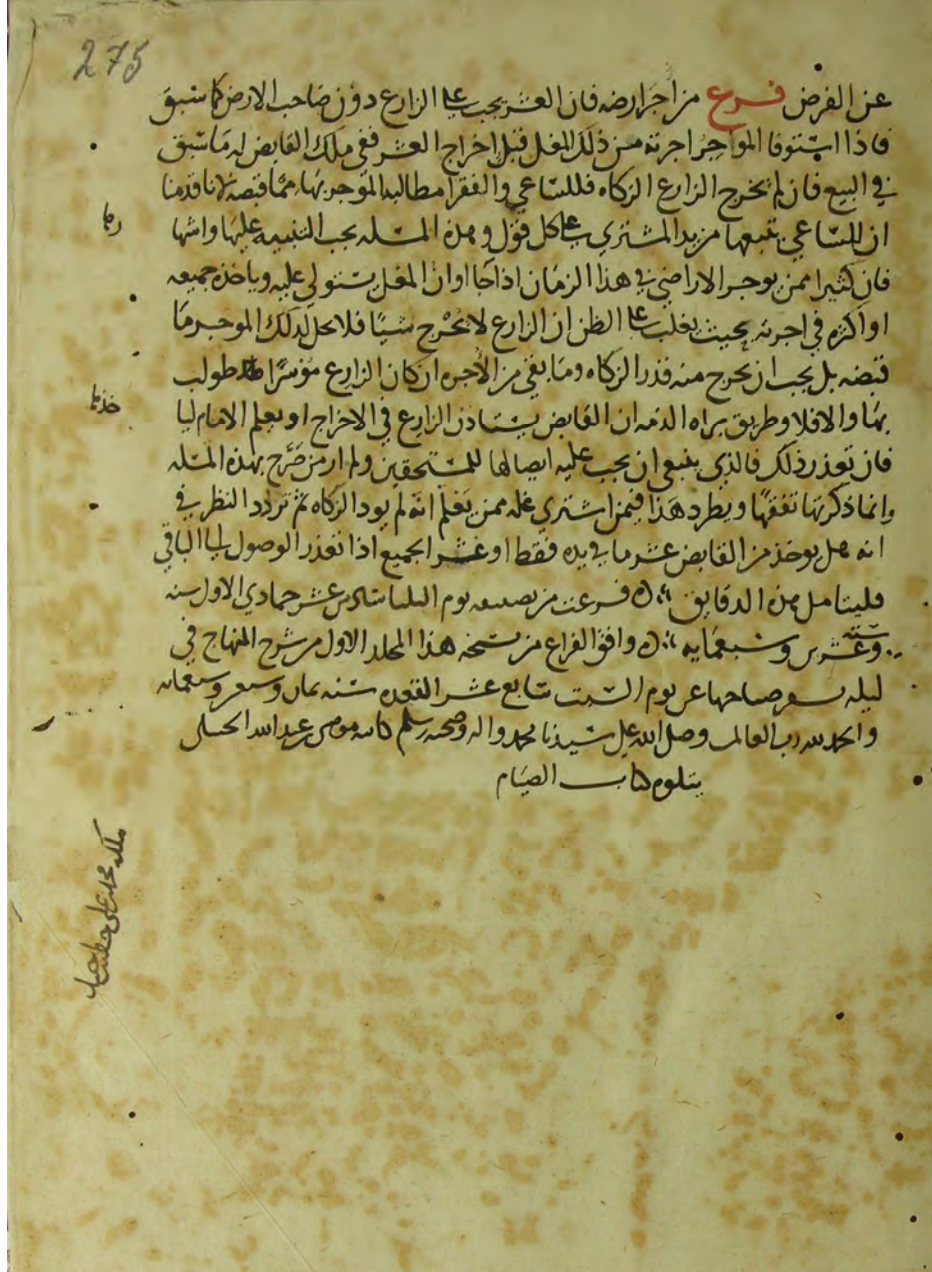 275
عن الفرض فرع من اجر ارضه فان العشر يجب على الزارع دون صاحب الارض كما سبق
فاذا استوفا المواجر اجرته من ذلك المغل قبل اخراج العشر ففي ملك القابض له ما سبق
في البيع فان لم يخرج الزارع الزكاه فللساعي والفقرا مطالبه الموجر بها مما قبضه لانا قدمنا
ان للساعي تتبعها من يد المشتري على كل قول وهذه المسله يجب التنبيه عليها واشها
فان كثيرا ممن يوجر الاراضي في هذا الزمان اذا جا اوان المغل يستولي عليه وياخذه جميعه
او اكثره في اجرته بحيث يغلب على الظن ان الزارع لا يخرج شيا فلا يحل لذلك الموجر ما
قبضه بل يجب ان يخرج منه قدر الزكاه وما بقي من الاجره ان كان الزارع موسرا طولب
بها والا فلا وطريق براه الذمه ان القابض يستاذن الزارع في الاخراج او يعلم الامام ليا
خذها
فان تعذر ذلك فالذي ينبغي ان يجب عليه ايصالها للمستحقين ولم ار من صرح بهذه المسله
وانما ذكرتها تفقها ويطرد هذا فيمن اشتري غله ممن يعلم انه لم يود الزكاه ثم تردد النظر في
انه هل يوخذ من القابض عشر ما في يده فقط او عشر الجميع اذا تعذر الوصول الى الباقي
فليتامل هذه الدقايق فرغت من تصنيفه يوم الثلثا سادس عشر جمادي الاول سنه
سته وعشرين وسبعمايه وافق الفراغ من نسخه هذا المجلد الاول من شرح المنهاج في
ليله يسفر صاحها عن يوم السبت سابع عشر القعده سنه ثمان وسبعمايه
والحمد لله رب العالمين وصلى الله على سيدنا محمد واله وصحبه وسلم كاتبه موسى بن عبد الله الحنبلي
يتلوه كتاب الصيام